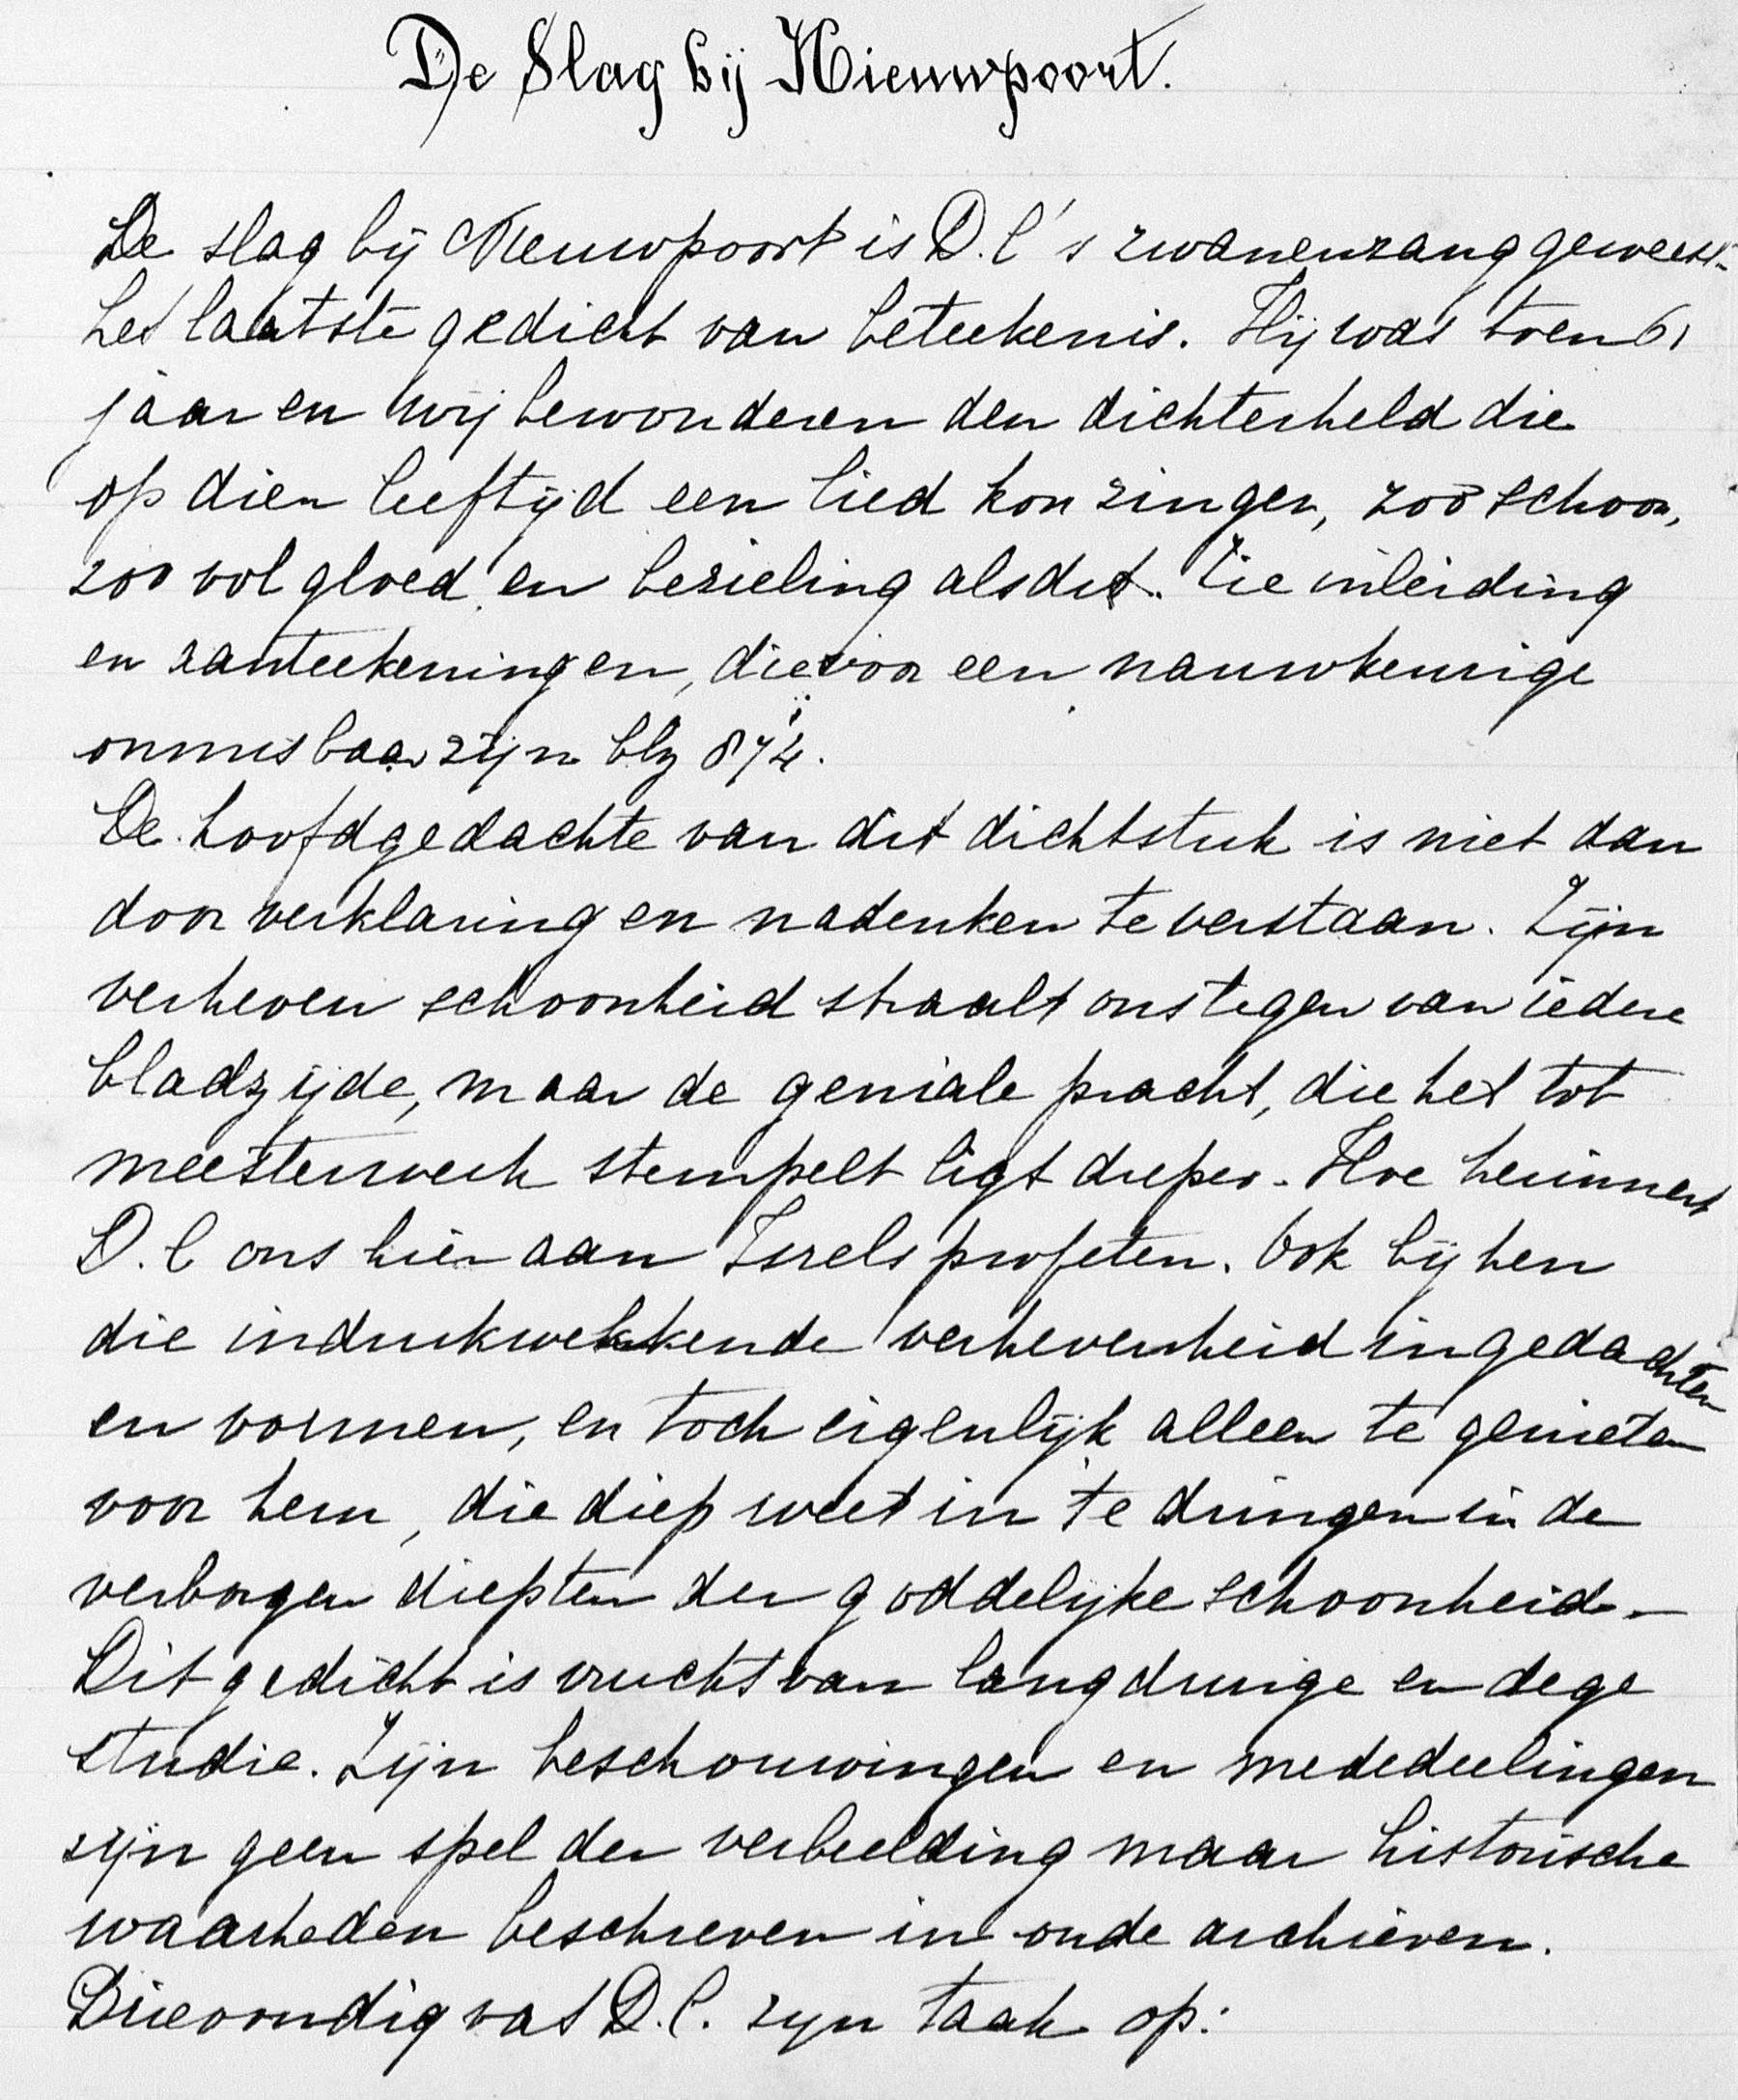 De Slag bij Nieuwpoort.
De slag bij Nieuwpoort is D.C's zwanenzang geweest.
het laatste gedicht van beteekenis. Hij was toen 61
jaar en wij bewonderen den dichterheld die
op dien leeftijd een lied kon zingen, zoo schoon,
zoo vol gloed en bezieling als dit. Zie inleiding
en aanteekeningen, die voor een nauwkeurige
onmisbaar zijn blz 874.
De hoofdgedachte van dit dichtstuk is niet dan
door verklaring en nadenken te verstaan. Zijn
verheven schoonheid straalt ons tegen van iedere
bladzijde, maar de geniale pracht, die het tot
meesterwerk stempelt ligt dieper. Hoe herinnert
D.C ons hier aan Isrels profeten. Ook bij hen
die indrukwekkende verhevenheid in gedachten
en vormen, en toch eigenlijk alleen te genieten
voor hem, die diep weet in te dringen in de
verborgen diepten der goddelijke schoonheid.
Dit gedicht is vrucht van langdurige en dege
studie. Zijn beschouwingen en mededeelingen
zijn geen spel der verbeelding maar historische
waarheden beschreven in oude archieven.
Drievoudig vat D.C. zijn taak op: